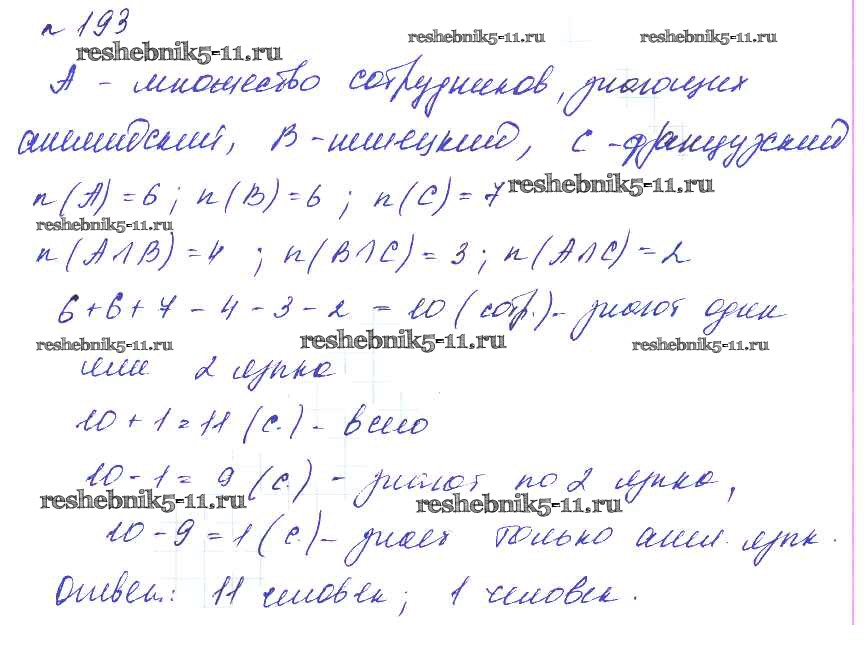 n 193
reshebnik5-11.ru reshebnik5-11.ru reshebnik5-11.ru
A - множество сотрудников, знающих
английский, B - немецкий, C - французский
n(A) = 6; n(B) = 6; n(C) = 7 reshebnik5-11.ru
reshebnik5-11.ru
n(A∩B) = 4; n(B∩C) = 3; n(A∩C) = 2
6 + 6 + 7 - 4 - 3 - 2 = 10 (сотр.) - знают один
reshebnik5-11.ru reshebnik5-11.ru reshebnik5-11.ru
или 2 языка
10 + 1 = 11 (с.) - всего
10 - 1 = 9 (с.) - знают по 2 языка,
reshebnik5-11.ru reshebnik5-11.ru
10 - 9 = 1 (с.) - знает только англ. язык.
Ответ: 11 человек; 1 человек.